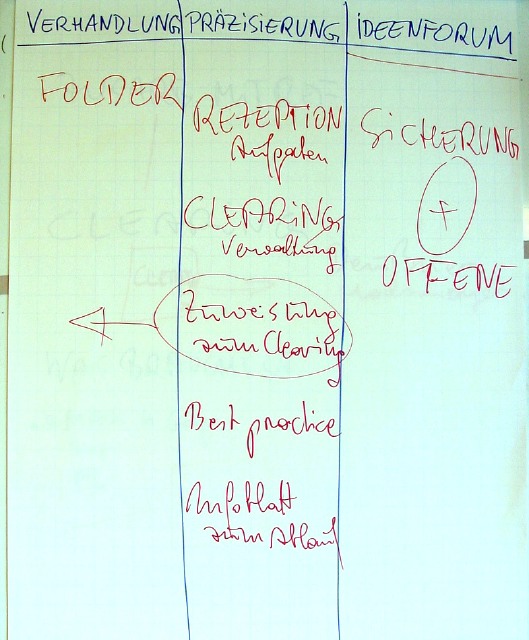 VERHANDLUNG
PRÄZISIERUNG
IDEENFORUM
FOLDER
REZEPTION
Aufgaben
CLEARING
Verwaltung
Zuweisung
zum Clearing
Best practice
Infoblatt
zum Ablauf
SICHERUNG
+
OFFENE